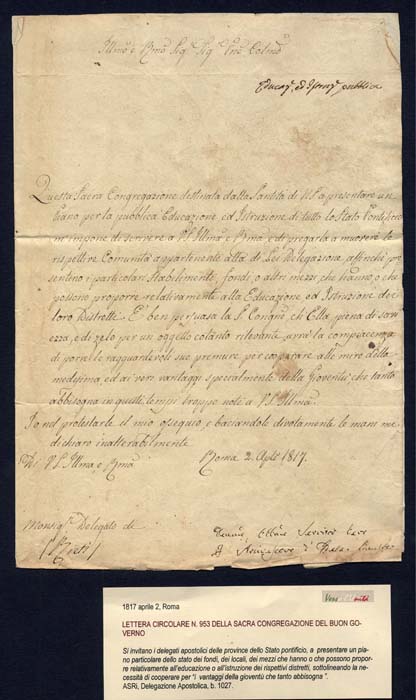 Illmo e Rmo Sig. Sig. Pne Colmo
Educaz. ed Istruz. pubblica
Questa Sacra Congregazione destinata dalla Santità di N.S. a presentare un
Piano per la pubblica Educazione ed Istruzione di tutto lo Stato Pontificio
m'impone di scrivere a V.S. Illma e Rma e di pregarla a muovere le
rispettive Comunità appartenenti alla di Lei Delegazione, affinchè pre
sentino i particolari Stabilimenti, fondi, o altri mezzi che hanno, o che
possono proporre relativamente alla Educazione ed Istruzione dei
loro Distretti. E ben persuasa la S. Congne. ch'Ella piena di sav
iezza, e di zelo per un oggetto cotanto rilevante, avrà la compiacenza
di porre le ragguardevoli sue premure per cooperare alle mire della
medesima, ed ai veri vantaggi specialmente della Gioventù che tanto
abbisogna in questi tempi troppo noti a V.S. Illma.
Io nel protestarle il mio ossequio, e baciandole divotamente le mani me
dichiaro inalterabilmente
Di V.S. Illma e Rma
Roma 2. Aple 1817.
Monsigr. Delegato di
Rieti
Servitor Vero
1817 aprile 2, Roma
LETTERA CIRCOLARE N. 953 DELLA SACRA CONGREGAZIONE DEL BUON GO-
VERNO
Si invitano i delegati apostolici delle province dello Stato pontificio, a presentare un pia-
no particolare dello stato dei fondi, dei locali, dei mezzi che hanno o che possono propor-
re relativamente all'educazione e all'istruzione dei rispettivi distretti, sottolineando la ne-
cessità di cooperare per "i vantaggi della gioventù che tanto abbisogna".
ASRi, Delegazione Apostolica, b. 1027.